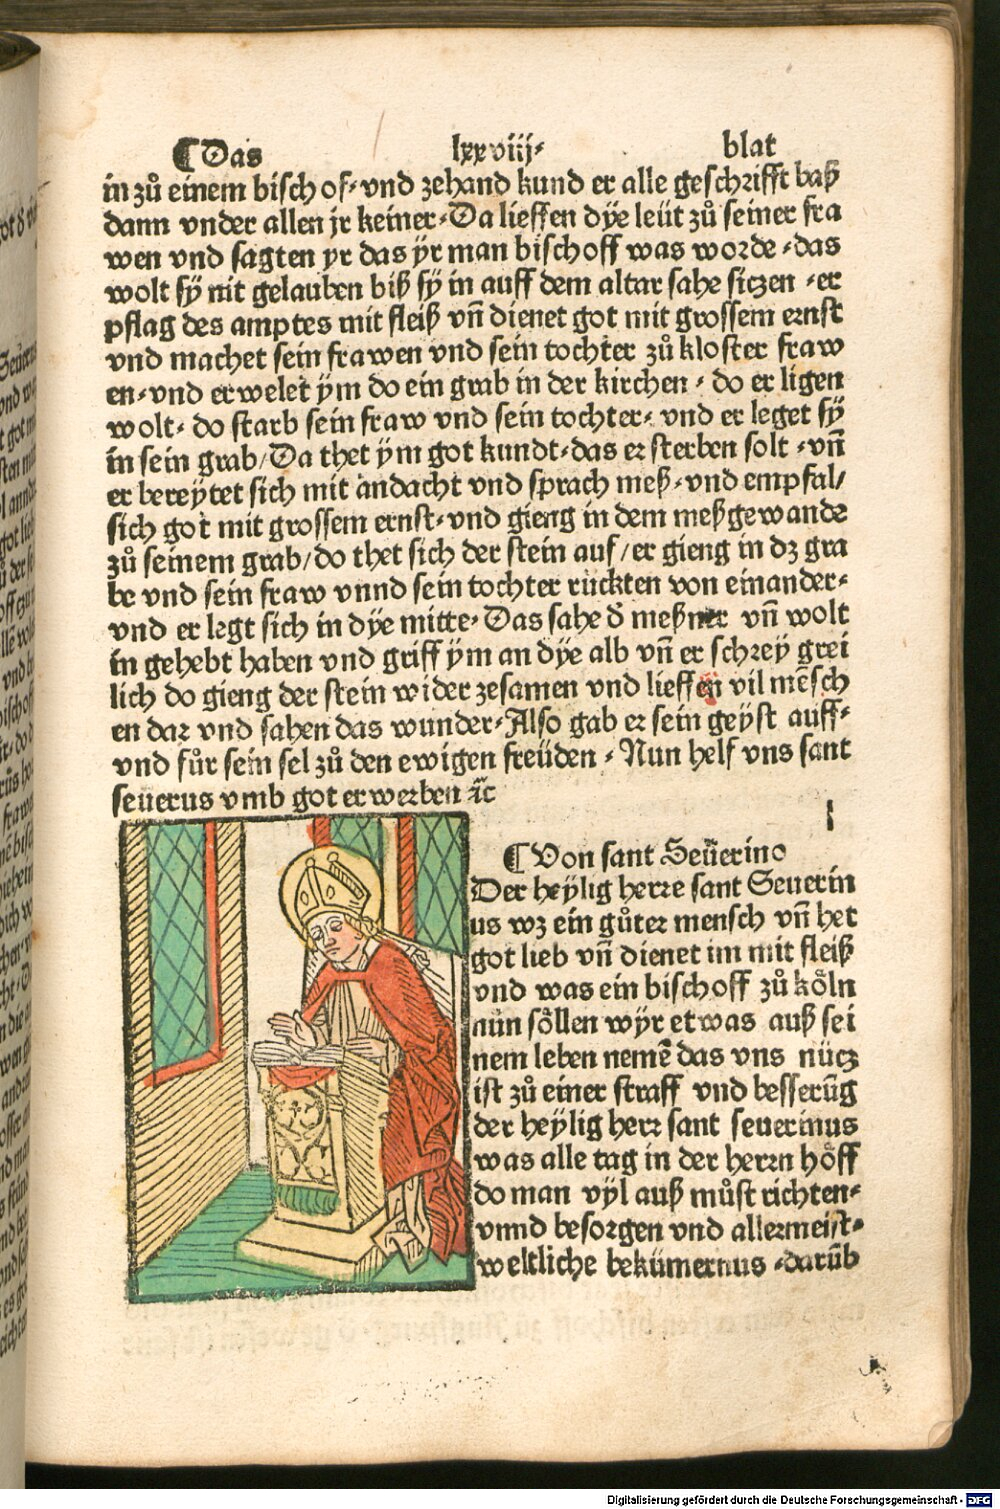 ¶ Das lxxviij· blat
in zů einem bischof· vnd zehand kund er alle geschrifft baß
dann vnder allen jr keiner· Da lieffen dÿe leüt zů seiner fra
wen vnd sagten yr das ÿr man bischoff was worde· das
wolt sÿ nit gelauben biß sÿ in auff dem altar sahe sitzen · er
pflag des amptes mit fleiß vñ dienet got mit grossem ernst
vnd machet sein frawen vnd sein tochter zů kloster fraw
en· vnd erwelet ÿm do ein grab in der kirchen · do er ligen
wolt· do starb sein fraw vnd sein tochter· vnd er leget sÿ
in sein grab/ Da thet ÿm got kundt· das er sterben solt · vñ
er bereÿtet sich mit andacht vnd sprach meß· vnd empfal/
sich got mit grossem ernst· vnd gieng in dem meßgewande
zů seinem grab/ do thet sich der stein auf/ er gieng in dz gra
be vnd sein fraw vnnd sein tochter rückten von einander·
vnd er legt sich in dÿe mitte· Das sahe d̕ meßner vñ wolt
in gehebt haben vnd griff ÿm an dÿe alb vñ er schreÿ grei
lich do gieng der stein wider zesamen vnd lieffen vil mẽsch
en dar vnd sahen das wunder· Also gab er sein geÿst auff·
vnd fůr sein sel zů den ewigen freüden · Nun helf vns sant
seuerus vmb got erwerben ⁊c̃
¶ Von sant Seuerino
Der heÿlig herre sant Seuerin
us wz ein gůter mensch vñ het
got lieb vñ dienet im mit fleiß
vnd was ein bischoff zů köln
nůn söllen wÿr etwas auß sei
nem leben nemẽ das vns nücz
ist zů einer straff vnd besserũg
der heÿlig herr sant seuerinus
was alle tag in der herrn höff
do man vÿl auß můst richten·
vnnd besorgen vnd allermeist·
weltliche bekümernus · darũb
Digitalisierung gefördert durch die Deutsche Forschungsgemeinschaft - DFG